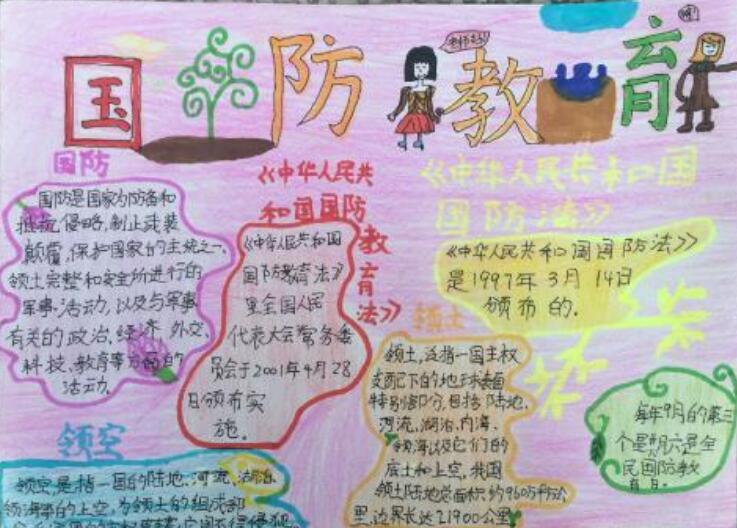 国防教育
老师好!
嗯!
国防
国防是国家为防备和
抵抗侵略,制止武装
颠覆,保护国家的主统之一,
领土完整和安全所进行的
军事活动,以及与军事
有关的政治、经济、外交、
科技、教育等方面的
活动。
《中华人民共
和国国防
教育法》
《中华人民共和国
国防教育法》
是全国人民
代表大会常务委
员会于2001年4月28
日颁布实
施。
《中华人民共和国
国防法》
《中华人民共和国国防法》
是1997年3月14日
颁布的。
领土
领土,泛指一国主权
支配下的地球表面
特别部分,包括陆地、
河流、湖泊、内海、
领海以及它们的
底土和上空,我国
领土陆地总面积约960万平方公
里,边界长达21900公里
每年9月的第三
个星期六是全
民国防教
育日。
领空
领空,是指一国的陆地、河流、湖泊、
领海等的上空,为领土的组成部